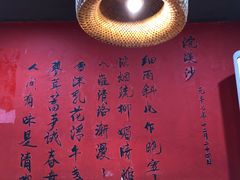 浣溪沙
元丰七年十二月二十四日
细雨斜风作晓寒
淡烟疏柳媚晴滩
入淮清洛渐漫
雪沫乳花浮午
蓼茸蒿笋试春
人间有味是清